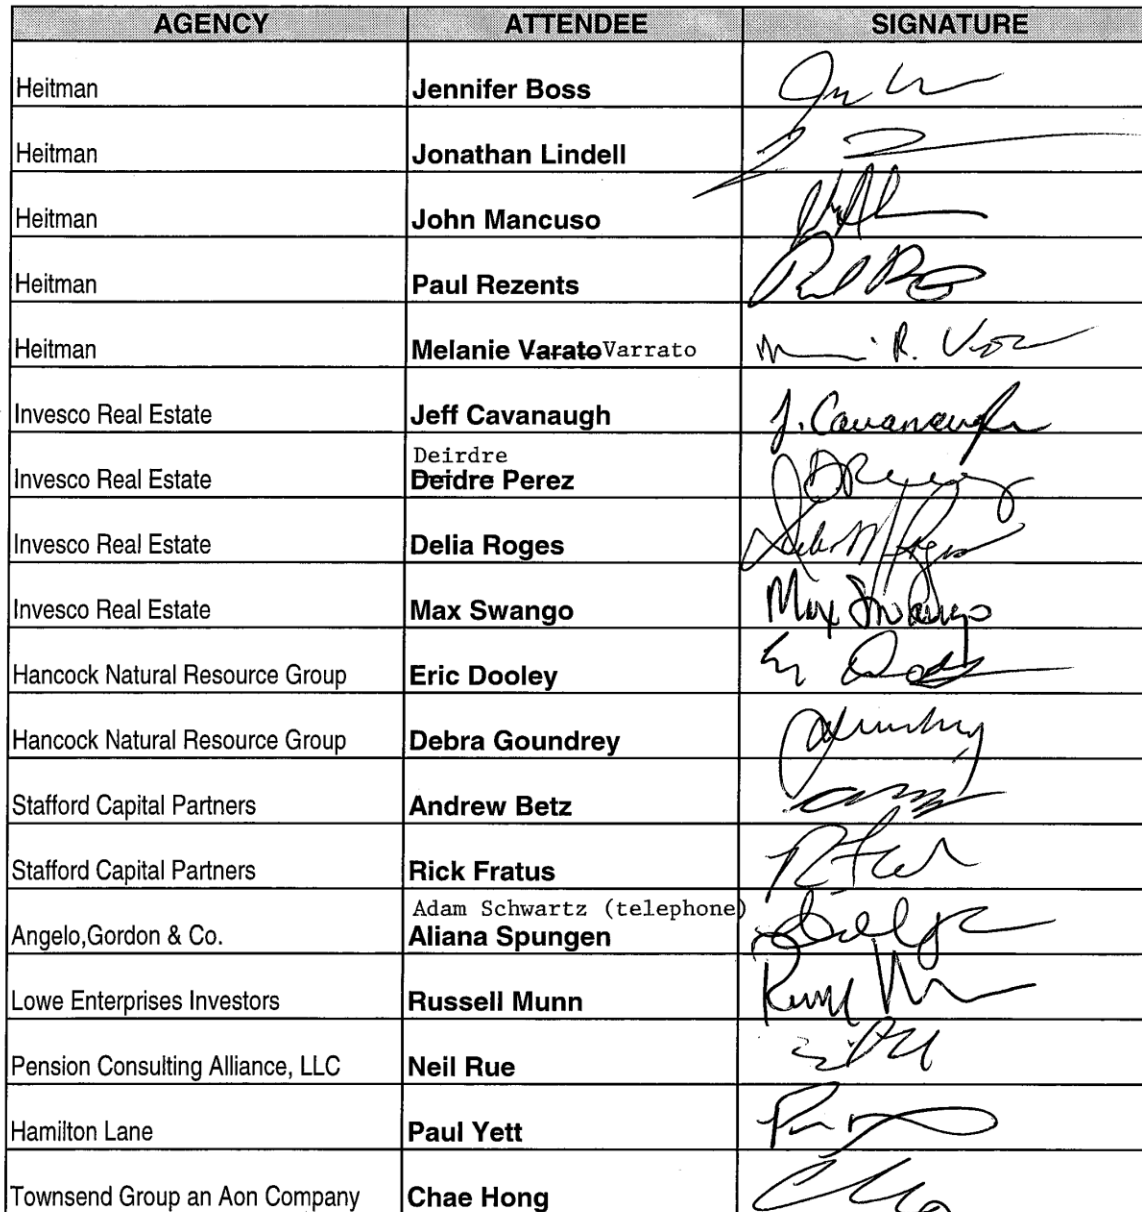 AGENCY ATTENDEE SIGNATURE
Heitman Jennifer Boss
Heitman Jonathan Lindell
Heitman John Mancuso
Heitman Paul Rezents
Heitman Melanie Varato Varrato
Invesco Real Estate Jeff Cavanaugh J. Cavanaugh
Deirdre
Invesco Real Estate Deidre Perez
Invesco Real Estate Delia Roges
Invesco Real Estate Max Swango Max Swango
Hancock Natural Resource Group Eric Dooley
Hancock Natural Resource Group Debra Goundrey
Stafford Capital Partners Andrew Betz
Stafford Capital Partners Rick Fratus
Adam Schwartz (telephone)
Angelo,Gordon & Co. Aliana Spungen
Lowe Enterprises Investors Russell Munn
Pension Consulting Alliance, LLC Neil Rue
Hamilton Lane Paul Yett
Townsend Group an Aon Company Chae Hong